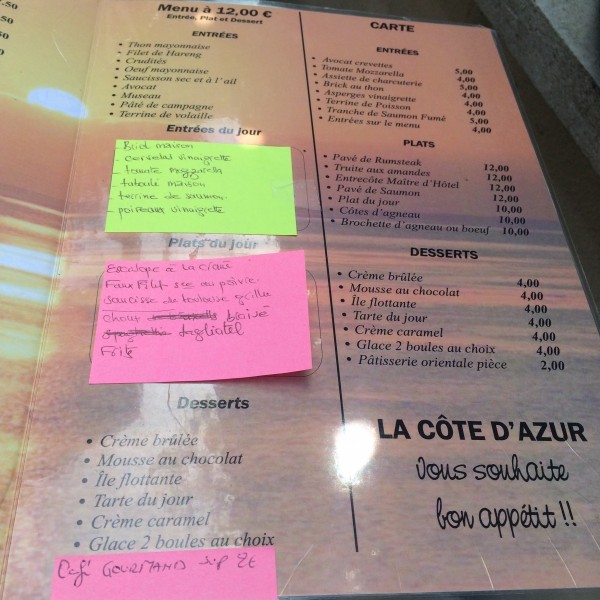 .50
50
50
0
Menu à 12,00 €
Entrée, Plat et Dessert
ENTRÉES
• Thon mayonnaise
• Filet de Hareng
• Crudités
• Oeuf mayonnaise
• Saucisson sec et à l'ail
• Avocat
• Museau
• Pâté de campagne
• Terrine de volaille
Entrées du jour
- Brick maison
- cervelas vinaigrette
- tomate mozzarella
- taboulé maison
- terrine de saumon.
- poireaux vinaigrette
Plats du jour
Escalope à la crème
Faux filet sce au poivre
saucisse de toulouse grillée
choux braisé
tagliatel
Frite
Desserts
• Crème brûlée
• Mousse au chocolat
• Île flottante
• Tarte du jour
• Crème caramel
• Glace 2 boules au choix
Café GOURMANDS sup 2€
CARTE
ENTRÉES
• Avocat crevettes 5,00
• Tomate Mozzarella 4,00
• Assiette de charcuterie 4,00
• Brick au thon 5,00
• Asperges vinaigrette 4,00
• Terrine de Poisson 4,00
• Tranche de Saumon Fumé 5,00
• Entrées sur le menu 4,00
PLATS
• Pavé de Rumsteak 12,00
• Truite aux amandes 12,00
• Entrecôte Maître d'Hôtel 12,00
• Pavé de Saumon 12,00
• Plat du jour 10,00
• Côtes d'agneau 10,00
• Brochette d'agneau ou boeuf 10,00
DESSERTS
• Crème brûlée 4,00
• Mousse au chocolat 4,00
• Île flottante 4,00
• Tarte du jour 4,00
• Crème caramel 4,00
• Glace 2 boules au choix 4,00
• Pâtisserie orientale pièce 2,00
LA CÔTE D'AZUR
vous souhaite
bon appétit !!